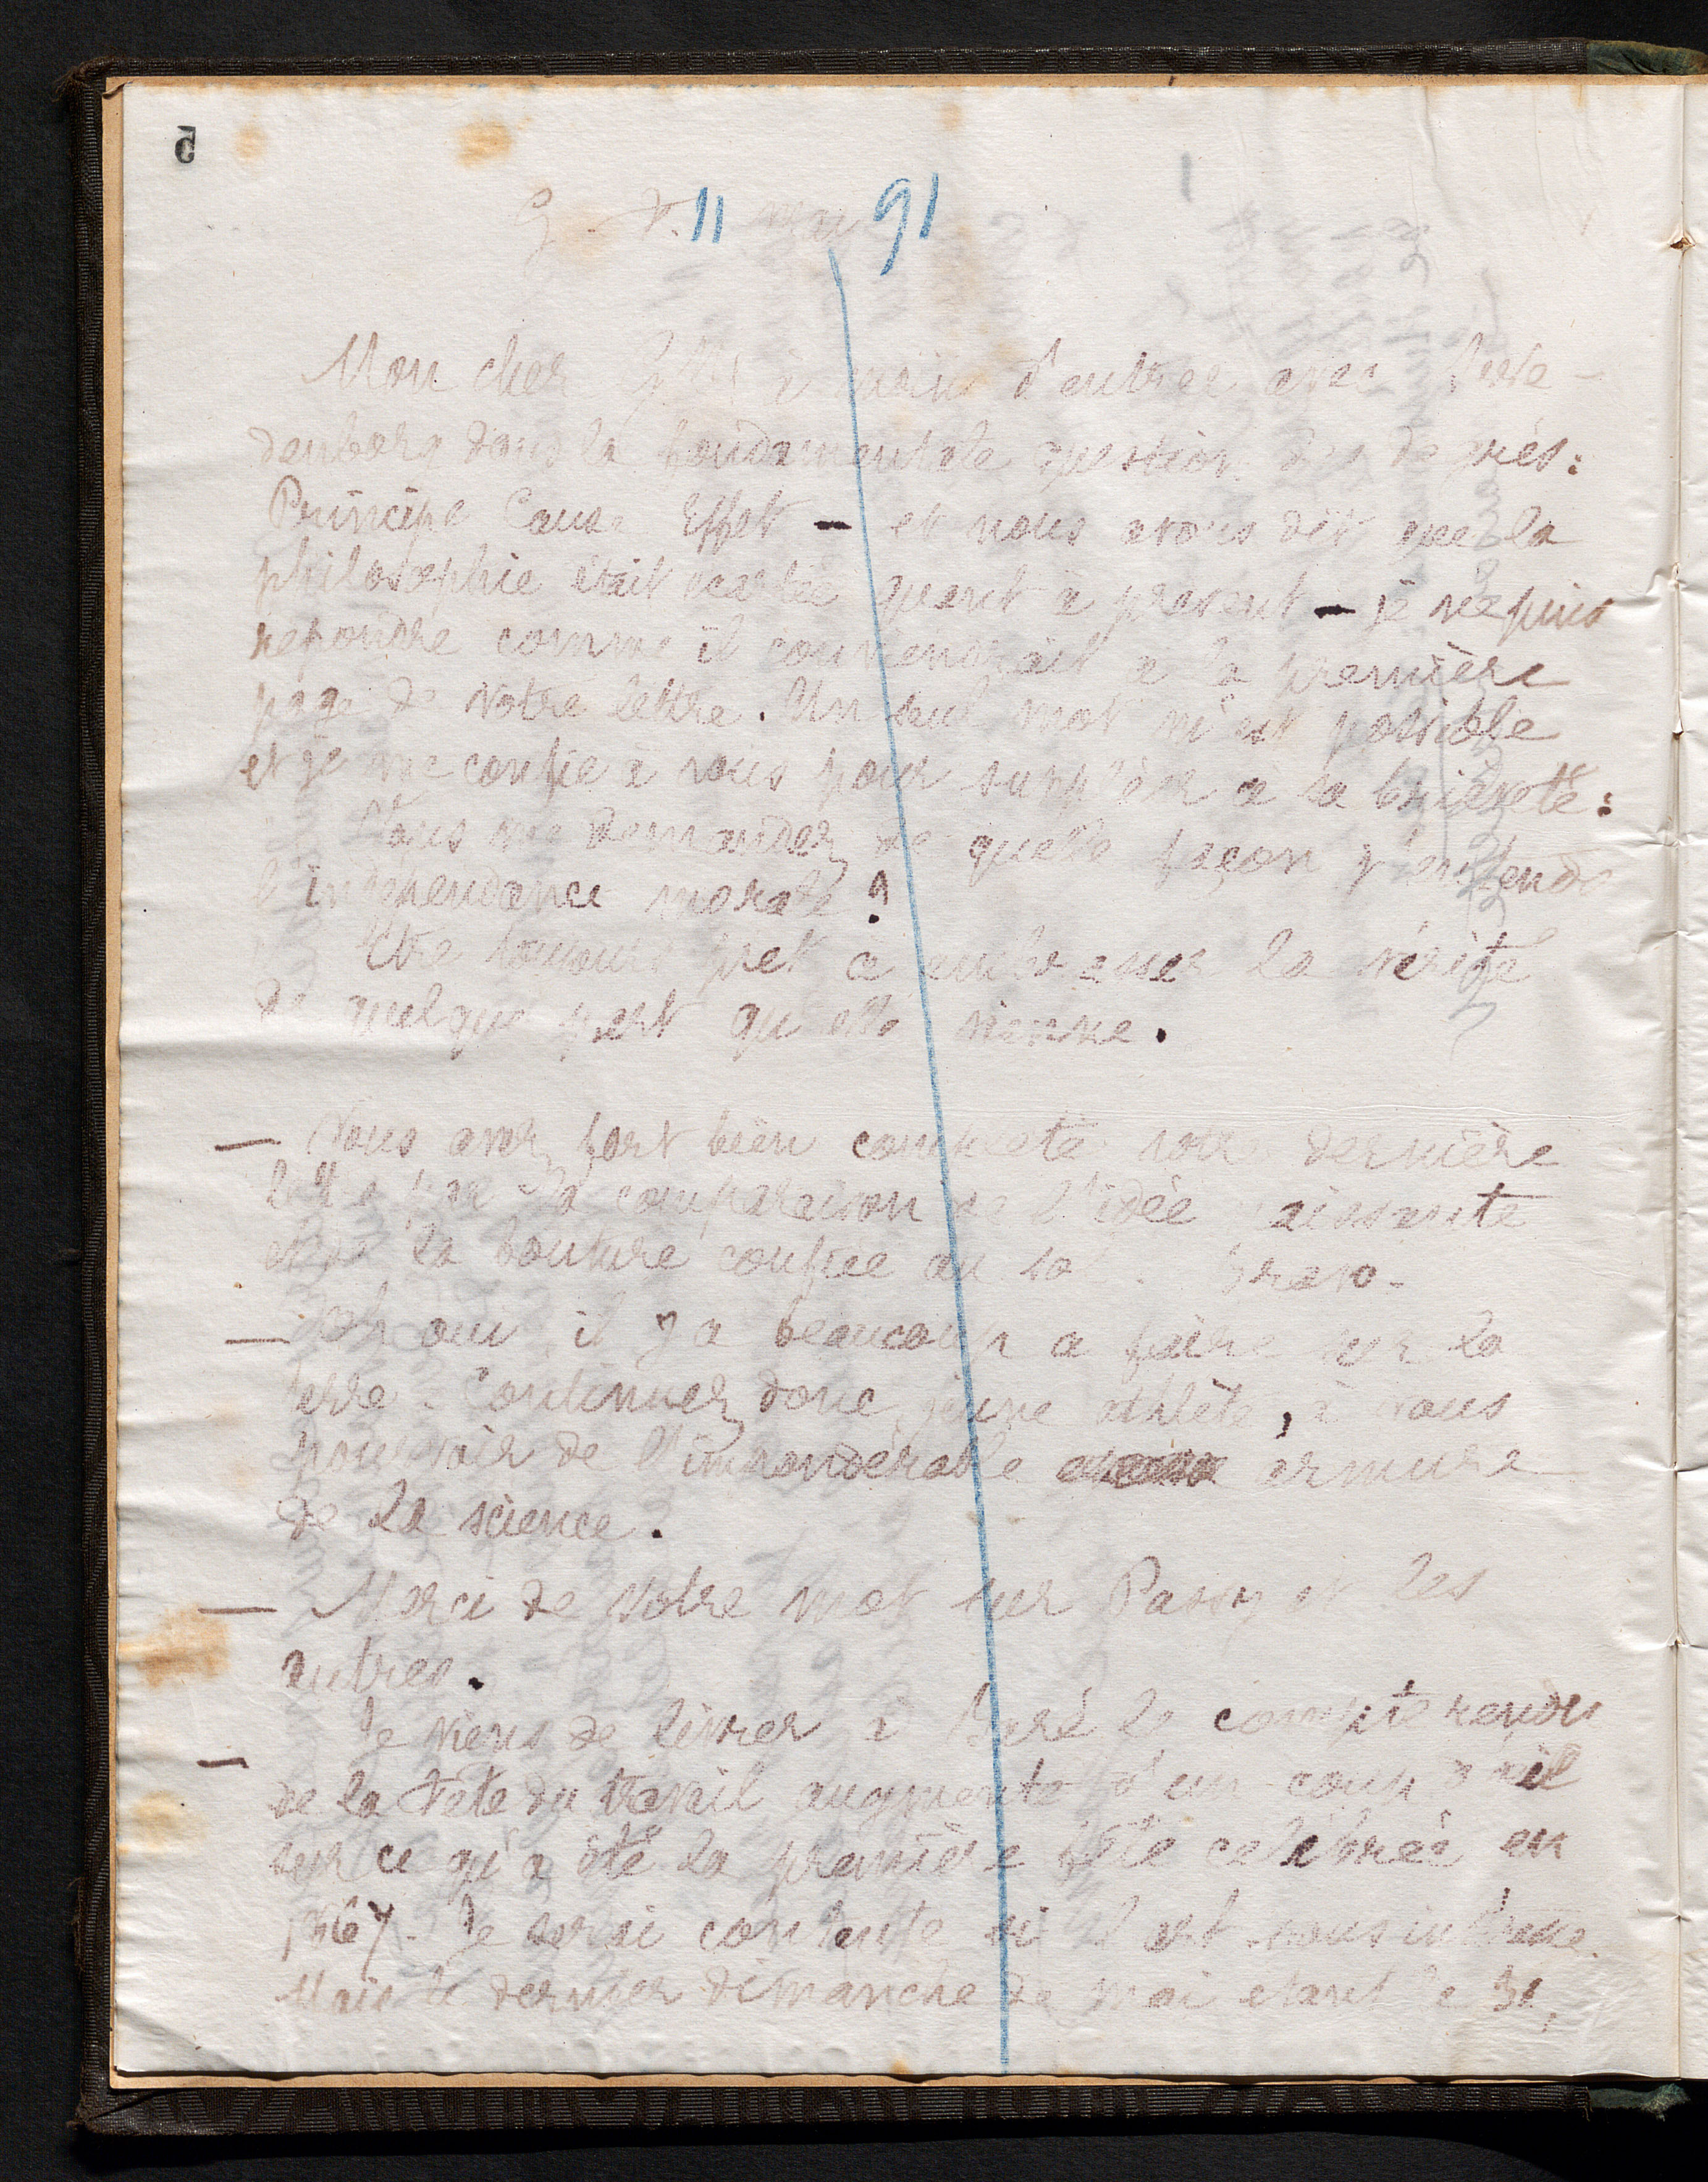 5
11 mai 91
Mon cher à moins d'entrer avec Swe-
denborg dans la fondamentale question des degrés:
Principe Cause Effet — et nous avons dit que la
philosophie était écartée quant à présent — je ne puis
repondre comme il conviendrait à la première
page de votre lettre. Un seul mot m'est possible
et je me confie à vous pour suppléer à sa brièveté:
Vous me demandez de quelle façon j'entends
l'indépendance morale?
Etre toujours prêt à embrasser la vérité
de quelque part qu'elle vienne.
— Vous avez fort bien complété dernière
la comparaison de l'idée naissante
et de la bouture confiée au sol. Bravo-
— Oh oui il y a beaucoup a faire sur la
terre. Continuez donc, jeune athlète, à vous
pourvoir de l'impondérable armure
de la science.
— Merci de votre mot sur Passy et les
autres.
— Je viens de livrer à le compte rendu
de la Fête du travail augmenté d'un coup d'œil
sur ce qu'a été la première fête célébrée en
1867. Je serai contente si vous intéresse.
Mais le dernier dimanche de mai etant le 31,